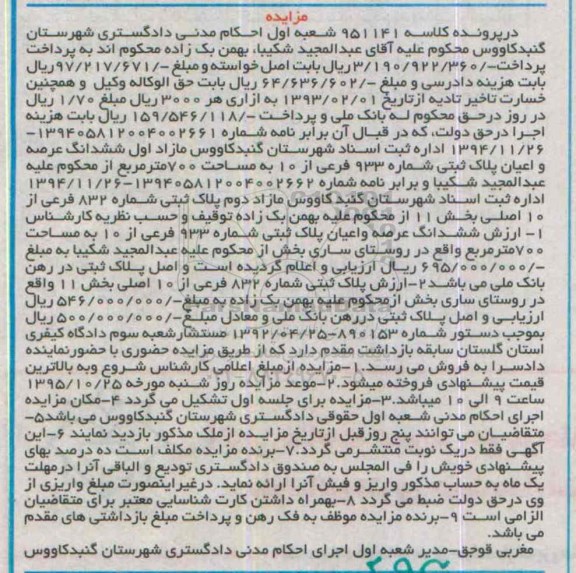 مزایده
درپرونده کلاسه ۹۵۱۱۴۱ شعبه اول احکام مدنی دادگستری شهرستان
گنبدکاووس محکوم علیه آقای عبدالمجید شکیبا، بهمن یک زاده محکوم اند به پرداخت
پرداخت-/۳/۱۹۰/۹۲۲/۳۶۰ریال بابت اصل خواسته و مبلغ -/۹۷/۲۱۷/۶۷۱ریال
بابت هزینه دادرسی و مبلغ -/۶۴/۶۳۶/۶۰۲ ریال بابت حق الوکاله وکیل و همچنین
خسارت تاخیر تادیه ازتاریخ ۱۳۹۳/۰۲/۰۱ به ازاری هر ۳۰۰۰ ریال مبلغ ۱/۷۰ ریال
در روز درحق محکوم له بانک ملی و پرداخت -/۱۵۹/۵۴۶/۱۱۸ ریال بابت هزینه
اجرا درحق دولت، که در قبال آن برابر نامه شماره ۱۳۹۴۰۵۸۱۲۰۰۴۰۰۲۶۶۱-
۱۳۹۴/۱۱/۲۶ اداره ثبت اسناد شهرستان گنبدکاووس مازاد اول ششدانگ عرصه
و اعیان پلاک ثبتی شماره ۹۳۳ فرعی از ۱۰ به مساحت ۷۰۰مترمربع از محکوم علیه
عبدالمجید شکیبا و برابر نامه شماره ۱۳۹۴۰۵۸۱۲۰۰۴۰۰۲۶۶۲-۱۳۹۴/۱۱/۲۶
اداره ثبت اسناد شهرستان گنبد کاووس مازاد دوم پلاک ثبتی شماره ۸۳۲ فرعی از
۱۰ اصلی بخش ۱۱ از محکوم علیه بهمن یک زاده توقیف و حسب نظریه کارشناس
۱- ارزش ششدانگ عرصه واعیان پلاک ثبتی شماره ۹۳۳ فرعی از ۱۰ به مساحت
۷۰۰مترمربع واقع در روستای ساری بخش از محکوم علیه عبدالمجید شکیبا به مبلغ
-/۶۹۵/۰۰۰/۰۰۰ ریال ارزیابی و اعلام گردیده است و اصل پلاک ثبتی در رهن
بانک ملی می باشد۲-ارزش پلاک ثبتی شماره ۸۳۲ فرعی از ۱۰ اصلی بخش ۱۱ واقع
در روستای ساری بخش ازمحکوم علیه بهمن یک زاده به مبلغ-/۵۴۶/۰۰۰/۰۰۰ ریال
ارزیابی و اصل پلاک ثبتی دررهن بانک ملی و معادل مبلغ-/۵۰۰/۰۰۰/۰۰۰ ریال
بموجب دستور شماره ۸۹۰۱۵۳-۱۳۹۲/۰۴/۲۵ مستشارشعبه سوم دادگاه کیفری
استان گلستان سابقه بازداشت مقدم دارد که از طریق مزایده حضوری با حضورنماینده
دادسرا به فروش می رسد.۱-مزایده ازمبلغ اعلامی کارشناس شروع وبه بالاترین
قیمت پیشنهادی فروخته میشود.۲-موعد مزایده روز شنبه مورخه ۱۳۹۵/۱۰/۲۵
ساعت ۹ الی ۱۰ میباشد.۳-مزایده برای جلسه اول تشکیل می گردد ۴-مکان مزایده
اجرای احکام مدنی شعبه اول حقوقی دادگستری شهرستان گنبدکاووس می باشد۵-
متقاضیان می توانند پنج روزقبل ازتاریخ مزایده ازملک مذکور بازدید نمایند ۶-این
آگهی فقط دریک نوبت منتشرمی گردد.۷-برنده مزایده مکلف است ده درصد بهای
پیشنهادی خویش را فی المجلس به صندوق دادگستری تودیع و الباقی آنرا درمهلت
یک ماه به حساب مذکور واریز و فیش آنرا ارائه نماید. درغیراینصورت مبلغ واریزی از
وی درحق دولت ضبط می گردد ۸-بهمراه داشتن کارت شناسایی معتبر برای متقاضیان
الزامی است ۹-برنده مزایده موظف به فک رهن و پرداخت مبلغ بازداشتی های مقدم
می باشد.
مغربی قوجق-مدیر شعبه اول اجرای احکام مدنی دادگستری شهرستان گنبدکاووس